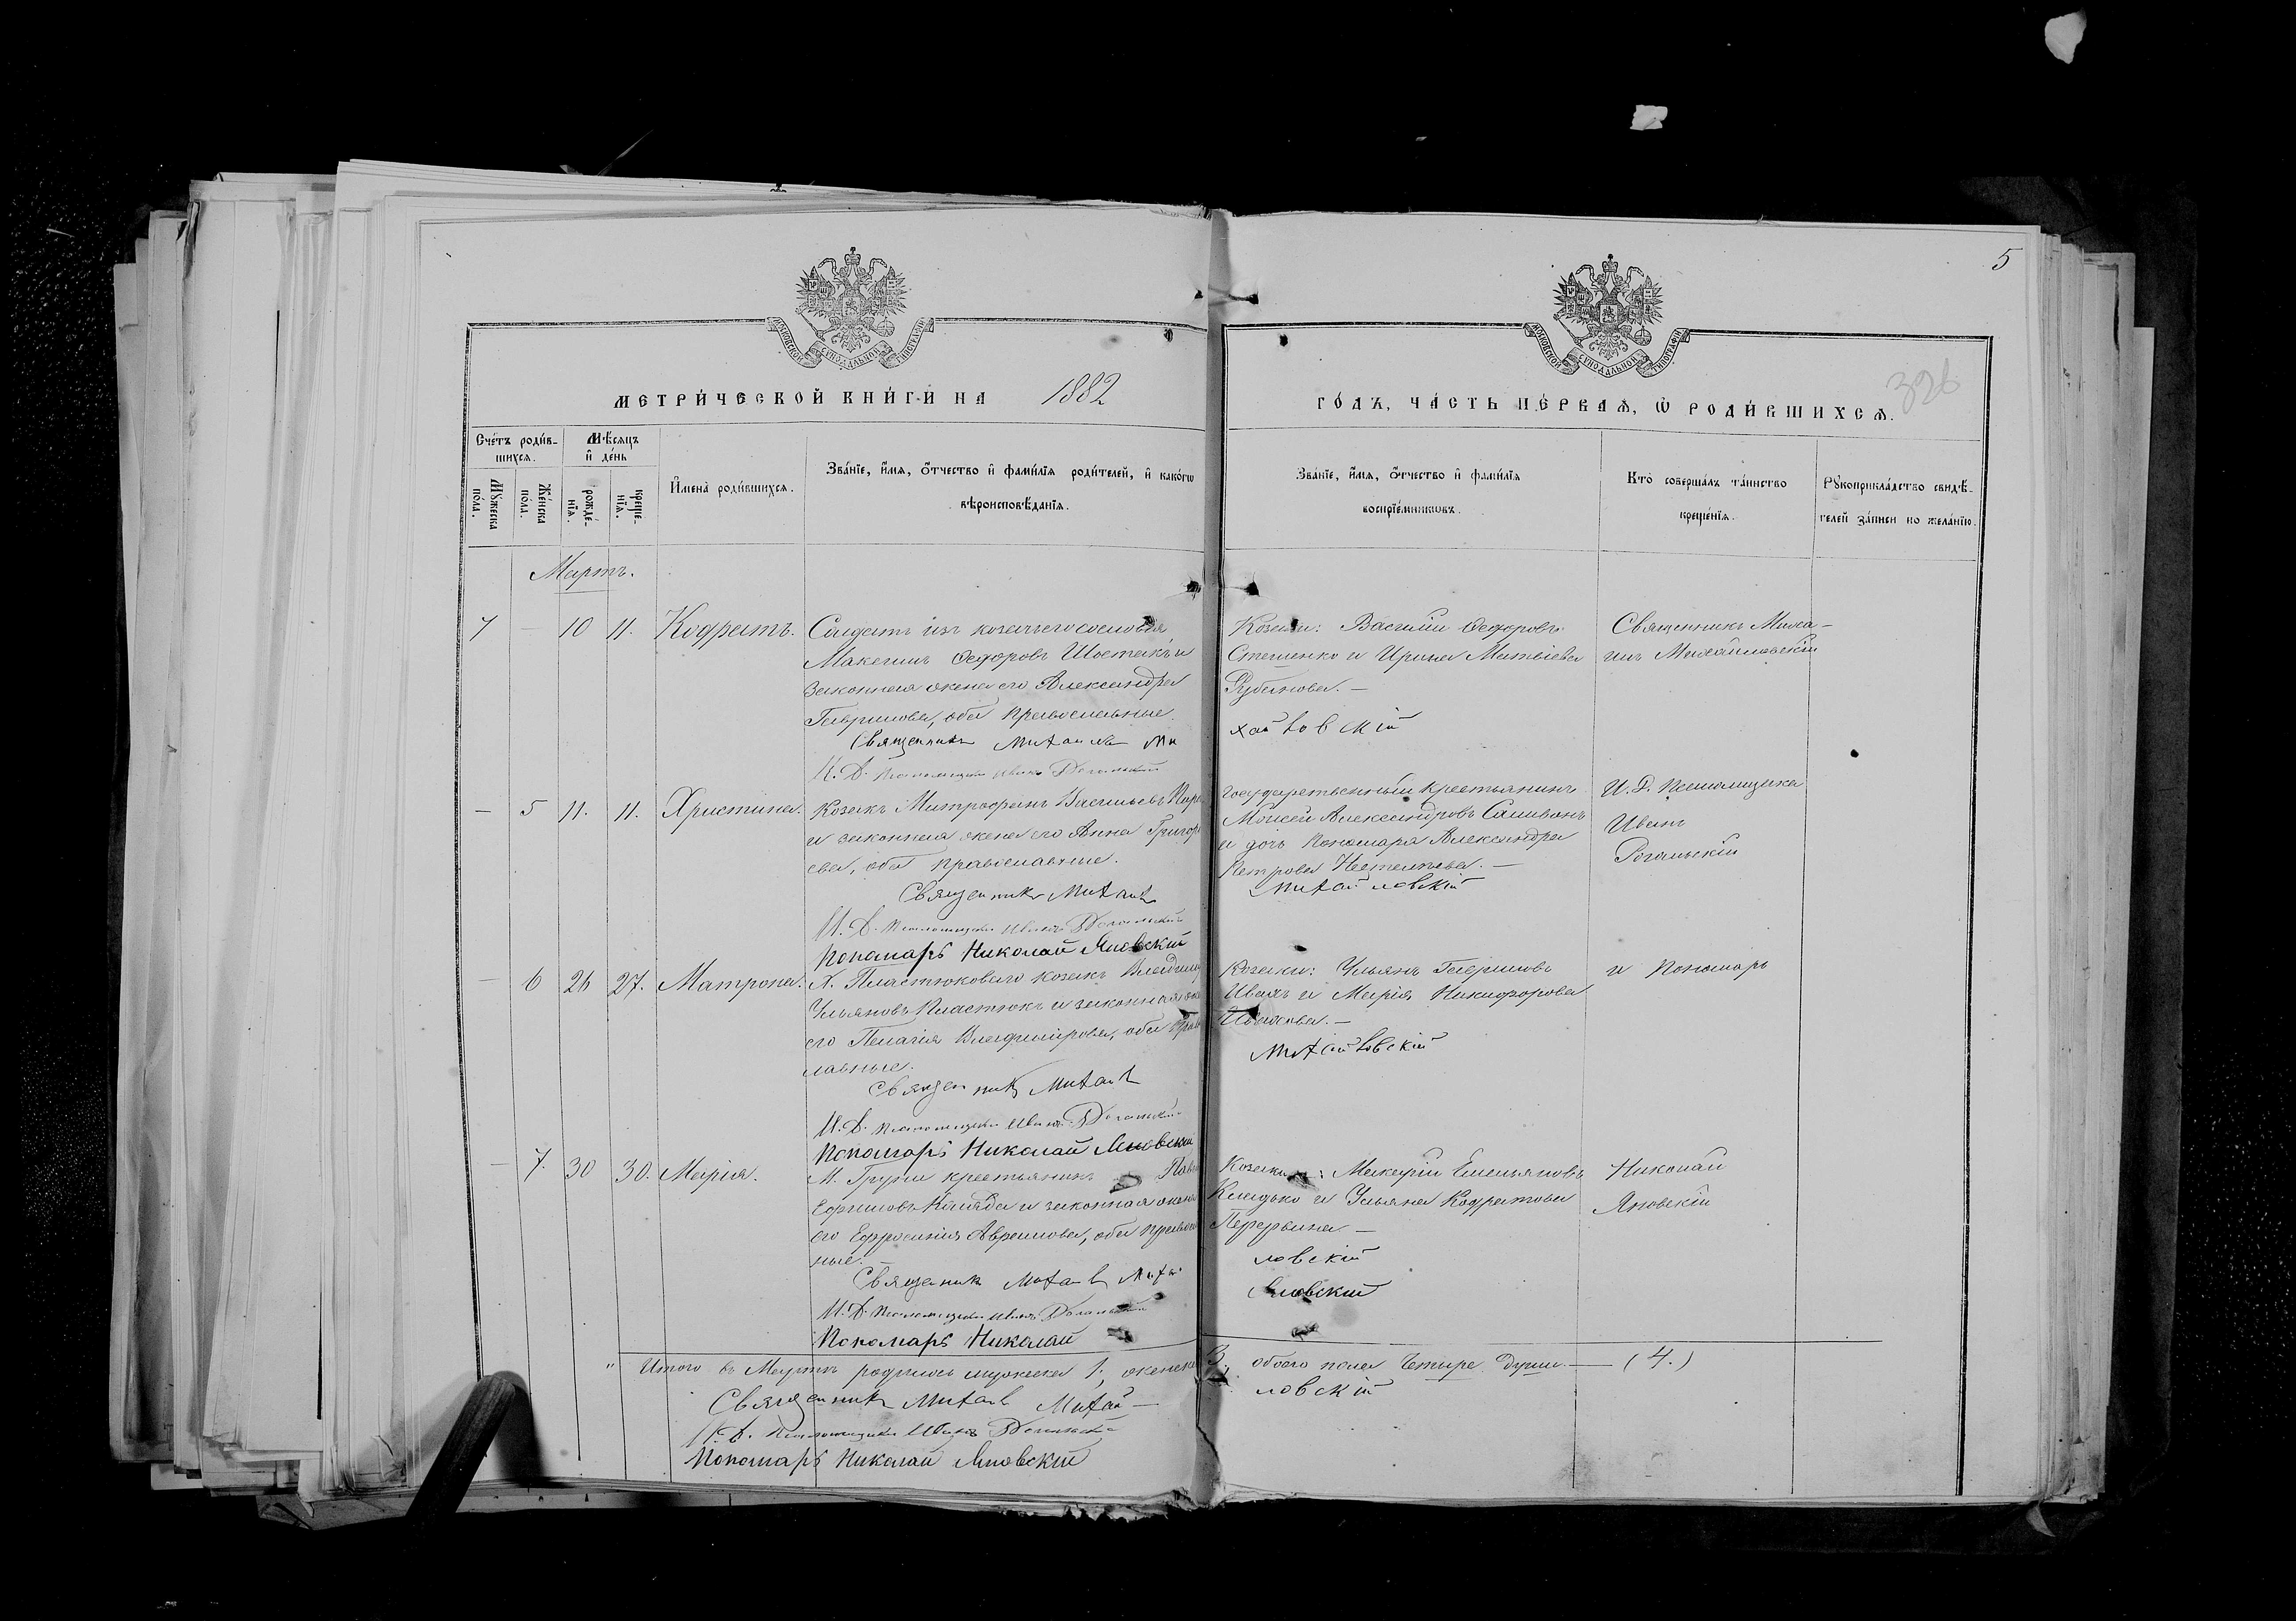 5
326
МОСКОВСКОЙ СѴНОДАЛЬНОЙ ТИПОГРАФІИ
МОСКОВСКОЙ СѴНОДАЛЬНОЙ ТИПОГРАФІИ
МЕТРИ́ЧЕСКОЙ КНИ́ГИ НА 1882
ГО́ДЪ, ЧА́СТЬ ПЕ́РВАѦ, Ѡ҆ РОДИ́ВШИХСѦ.
Сче́тъ роди́в-
шихсѧ.
Мѣ́сѧцъ
и҆ де́нь
Мꙋ́жеска
по́ла.
Же́нска
по́ла.
рожде́-
нїѧ.
креще́-
нїѧ.
И҆мена̀ роди́вшихсѧ.
Зва́нїе, и҆́мѧ, ѻ҆́тчество и҆ фами́лїѧ роди́телей, и҆ како́гѡ
вѣроисповѣ́данїѧ.
Зва́нїе, и҆́мѧ, ѻ҆́тчество и҆ фами́лїѧ
воспрїе́мникѡвъ.
Кто̀ соверша́лъ та́инство
креще́нїѧ.
Рꙋкоприкла́дство свидѣ́-
телей за́писи по жела́нїю.
Мартъ.
7 — 10 11. Кодратъ. Солдатъ изъ козачьего сословія
Максимъ Ѳедоровъ Шостакъ и
законная жена его Александра
Гаврилова, оба православные.
Священникъ Михаилъ Ми
И. Д. Псаломщика Иванъ Рогальскій
Козаки: Василій Ѳедоровъ
Стешенко и Ирина Матвіева
Рубанова. —
хайловскій
Священникъ Миха-
илъ Михайловскій
— 5 11. 11. Христина. Козакъ Митрофанъ Васильевъ
и законная жена его Анна Григорі
ева, оба православные.
Священникъ Михаилъ
И. Д. Псаломщика Иванъ Рогальскій
Пономарь Николай Яновскій
Государственный крестьянинъ
Моисей Александровъ Саливонъ
и дочь Пономаря Александра
Петрова
Михайловскій
И. Д. Псаломщика
Иванъ
Рогальскій
— 6 26 27. Матрона. Х. Пластюкового козакъ Владимі
Ульяновъ Пластюкъ и законная жена
его Пелагія Владимірова, оба право
лавные.
Священникъ Михаилъ
И. Д. Псаломщика Иванъ Рогальскій
Пономарь Николай Яновскій
Козаки: Ульянъ Гавриловъ
Ивахъ и Марія Никифорова
Ивахова. —
Михайловскій
и Пономарь
— 7. 30 30. Марія. М. Груни крестьянинъ Пав
Ефримовъ и законная жена
его Евфросинія Аврамова, оба правосл
ные. —
Священникъ Михаилъ Михай
И. Д. Псаломщика Иванъ Рогальскій
Пономарь Николай
Козаки: Макарій Емельяновъ
Кладько и Ульяна Кодратова
Передерина. —
ловскій
Яновскій
Николай
Яновскій
" Итого въ Мартѣ родилось мужеска 1, женска
3. обоего пола Четыре души. — (4.)
Священникъ Михаилъ Михай —
ловскій
И. Д. Псаломщика Иванъ Рогальскій
Пономарь Николай Яновскій